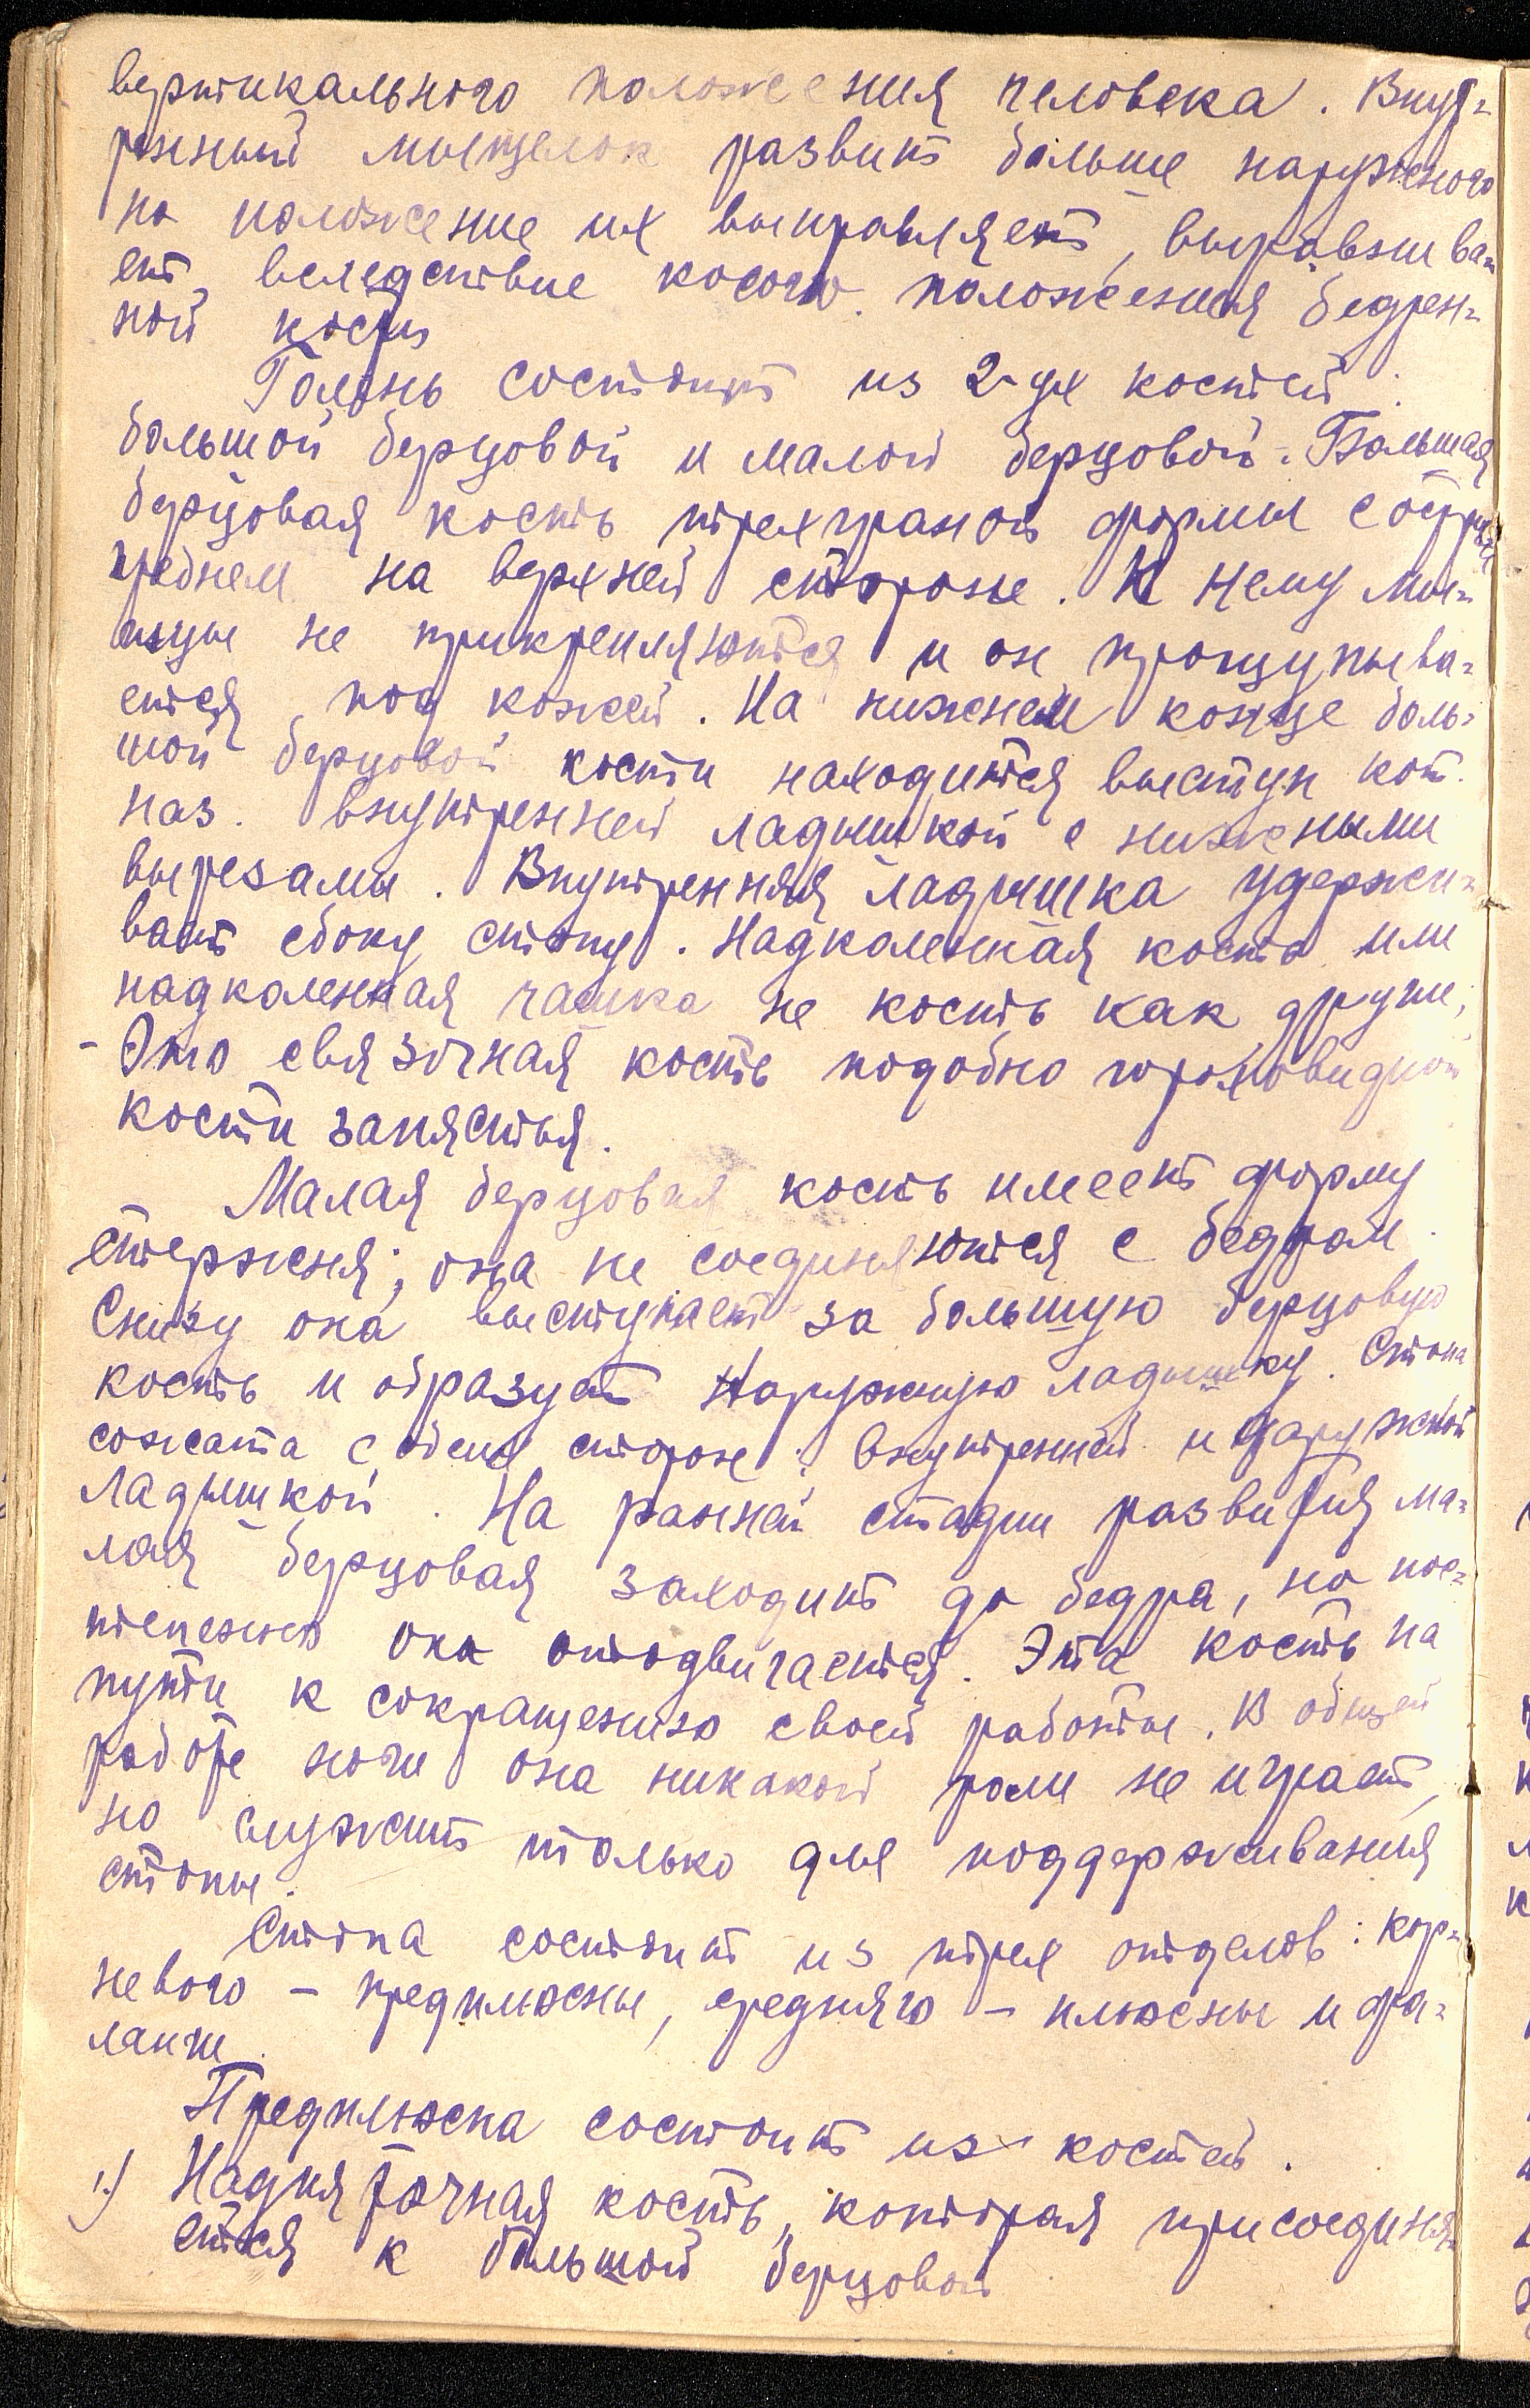 вертикального положения человека. Внут=
ренный мыщелок развит больше наружного
но положение их выправляет, выравнива=
ет, вследствие косого положения бедрен=
ной кости
Голень состоит из 2-ух костей:
большой берцовой и малой берцовой. Большая
берцовая кость трехграной формы с острым
гребнем на верхней стороне. К нему мы=
шцы не прикрепляются и он прощупыва=
ется под кожей. На нижнем конце боль=
шой берцовой кости находится выступ кот.
наз. внутренней ладышкой с нижеными
вырезами. Внутренняя ладышка удержи=
вает сбоку стопу. Надколенная кость или
надколенная чашка не кость как другие,
- Это связочная кость подобно гороховидной
кости запястья.
Малая берцовая кость имееет форму
стержня; она не соединяются с бедром.
Снизу она выступает за большую берцовую
кость и образует наружную ладышку. Стопа
сожата с обеих сторон: внутренней и наружной
ладышкой. На ранней стадии развития ма=
лая берцовая заходит до бедра, но пос=
тепенно она отодвигается. Эта кость на
пути к сокращению своей работы. В общей
работе ноги она никакой роли не играет,
но служит только для поддерживания
стопы.
Стопа состоит из трех отделов: кор=
невого - предплюсны, среднего - плюсны и фа=
ланги.
Предплюсна состоит из костей.
1.) Надпяточная кость, которая присоединя=
ется к большой берцовой